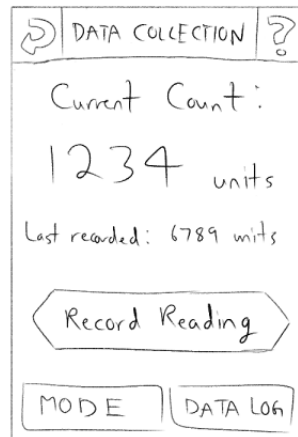 DATA COLLECTION ?
Current Count:
1234 units
Last recorded: 6789 units
Record Reading
MODE DATA LOG